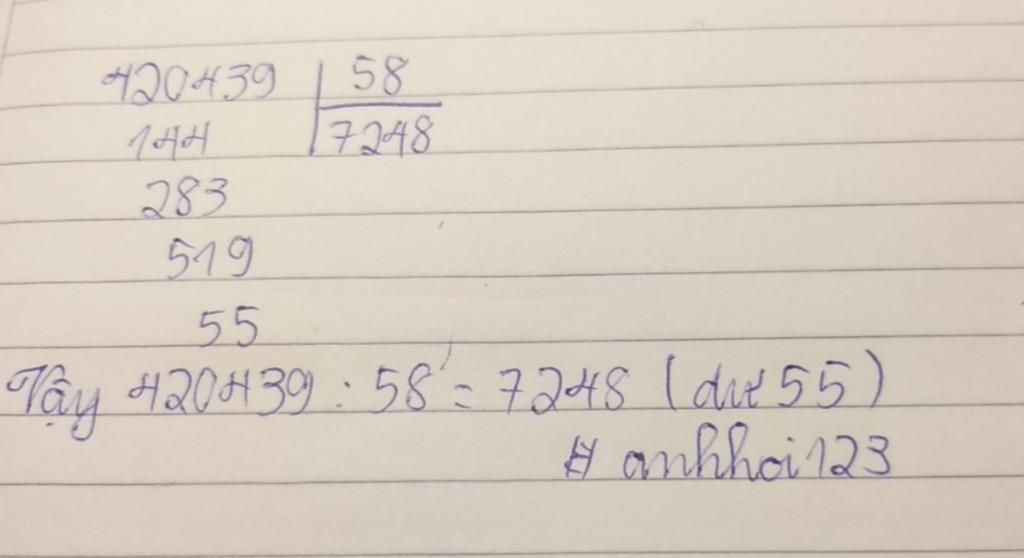 420439 | 58
144 | 7248
283
519
55
Vậy 420439 : 58 = 7248 (dư 55)
# anhhoi123